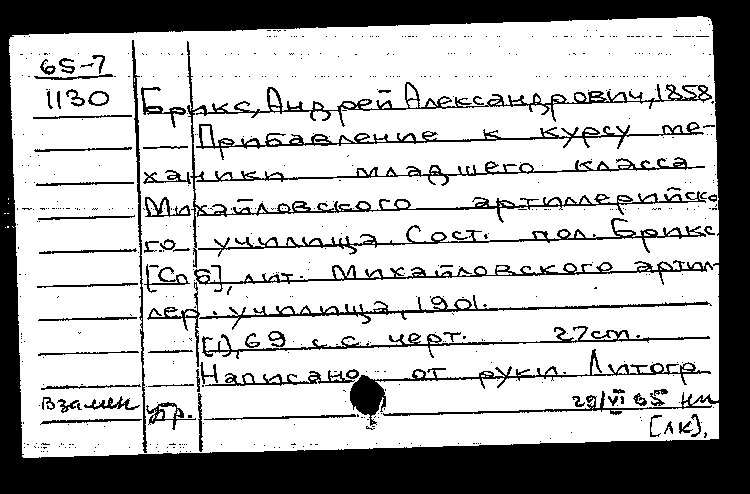 65-7
1130
Брикс, Андрей Александрович, 1858
Прибавление к курсу ме-
ханики младшего класса
Михайловского артиллерийско
го училища. Сост. пол. Брикс.
[Спб], лит. Михайловского артил-
лер. училища, 1901.
[1], 69 с.с. черт. 27cm.
Написано от руки. Литогр
Взамен упр. 29/VI 65 нм
[лк],